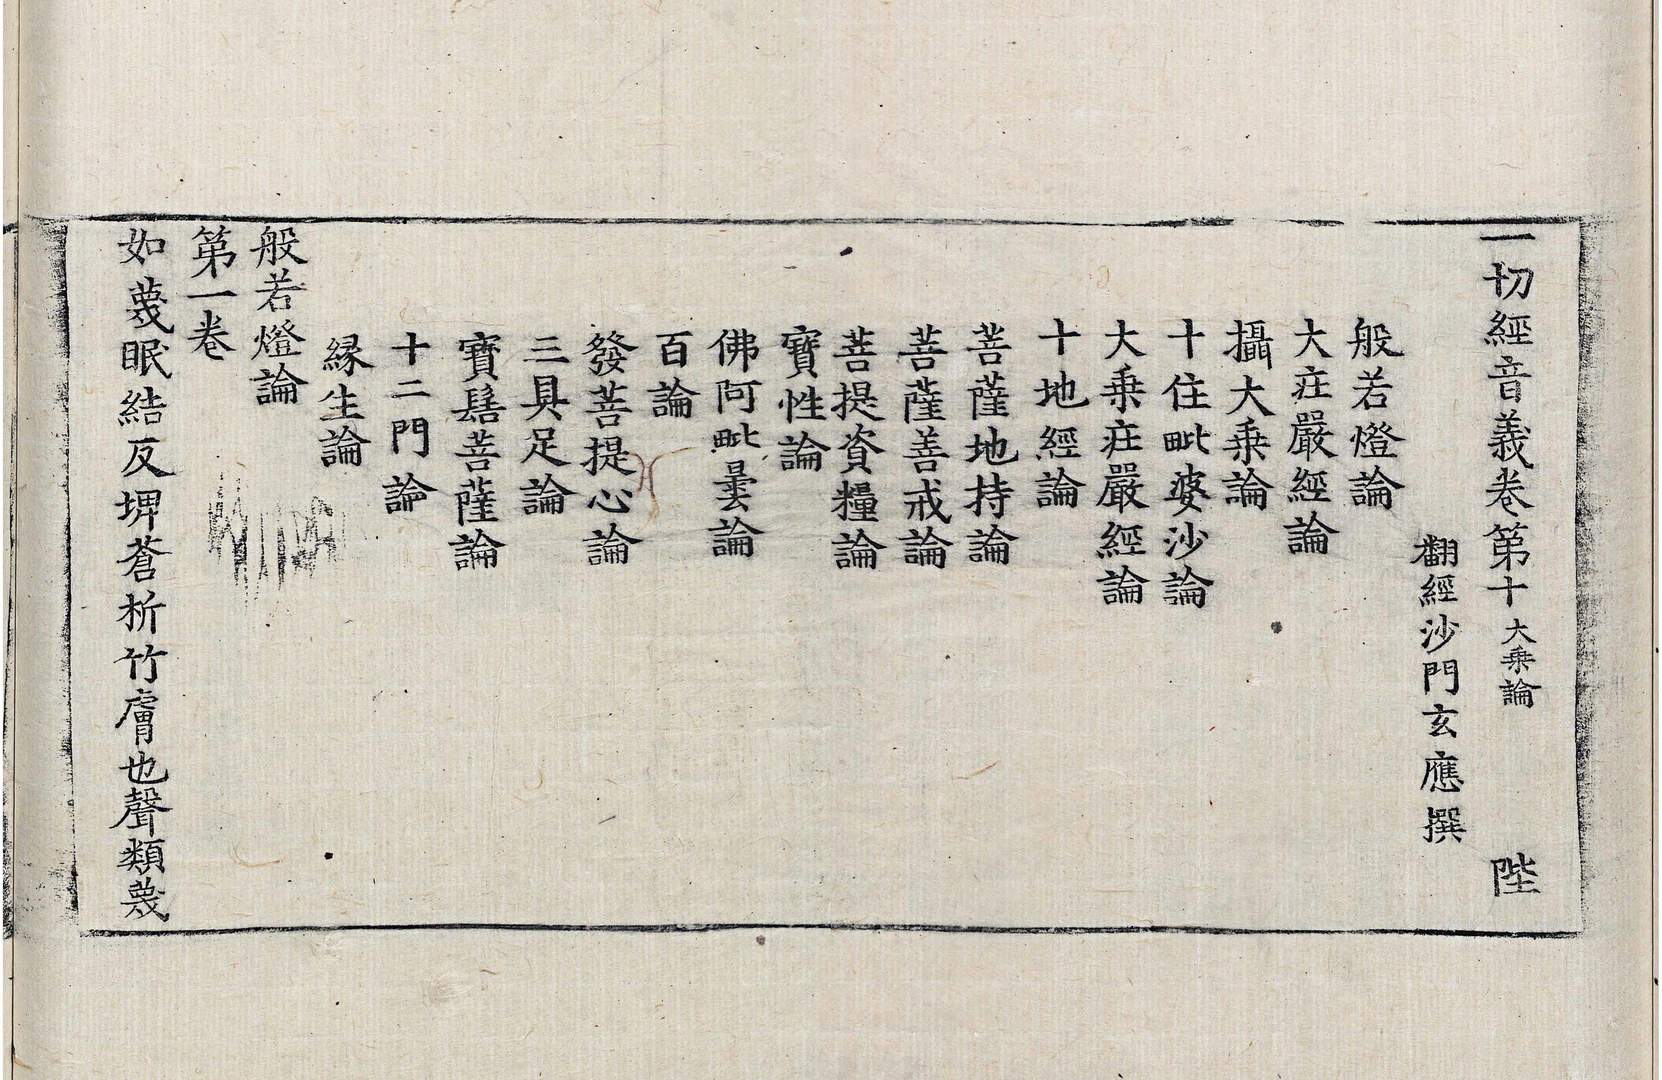 一切經音義卷第十 大乗論 陛
翻經沙門玄應撰
般若燈論
大疘嚴經論
攝大乗論
十住毗婆沙論
大乗疘嚴經論
十地經論
菩薩地持論
菩薩善戒論
菩提資糧論
寶性論
佛阿毗曇論
百論
發菩提心論
三具足論
寶髻菩薩論
十二門論
縁生論
般若燈論
第一卷
如蔑眠結反埤蒼析竹膚也聲類蔑